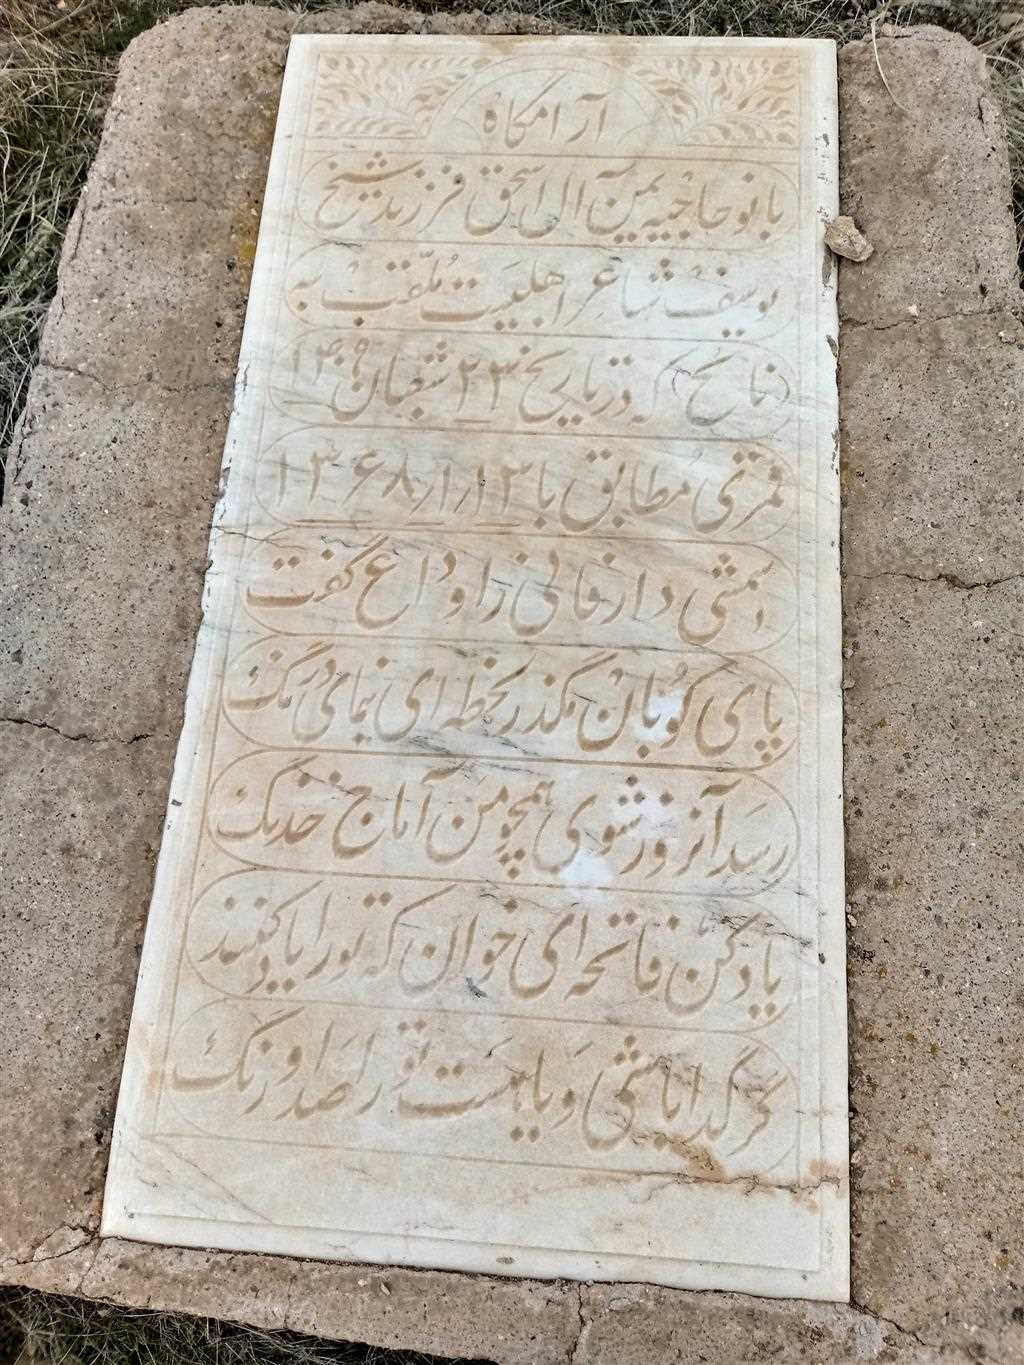 آرامگاه
بانو حاجیه یمن آل اسحق فرزند شیخ
یوسف شاعر اهلبیت ملقب به
(فاتح) که در تاریخ ۲۳ شعبان ۱۴۰۹
قمری مطابق با ۱۳/۱/۱۳۶۸
شمشی دار فانی را وداع گفت
پای کوبان مگذر لحظه ای نمای درنگ
رسد آنروز شوی همچو من آماج خدنگ
یاد کن فاتحه ای خوان که تو را یاد کنند
گر گدا باشی و یا هست تو را صد اورنگ